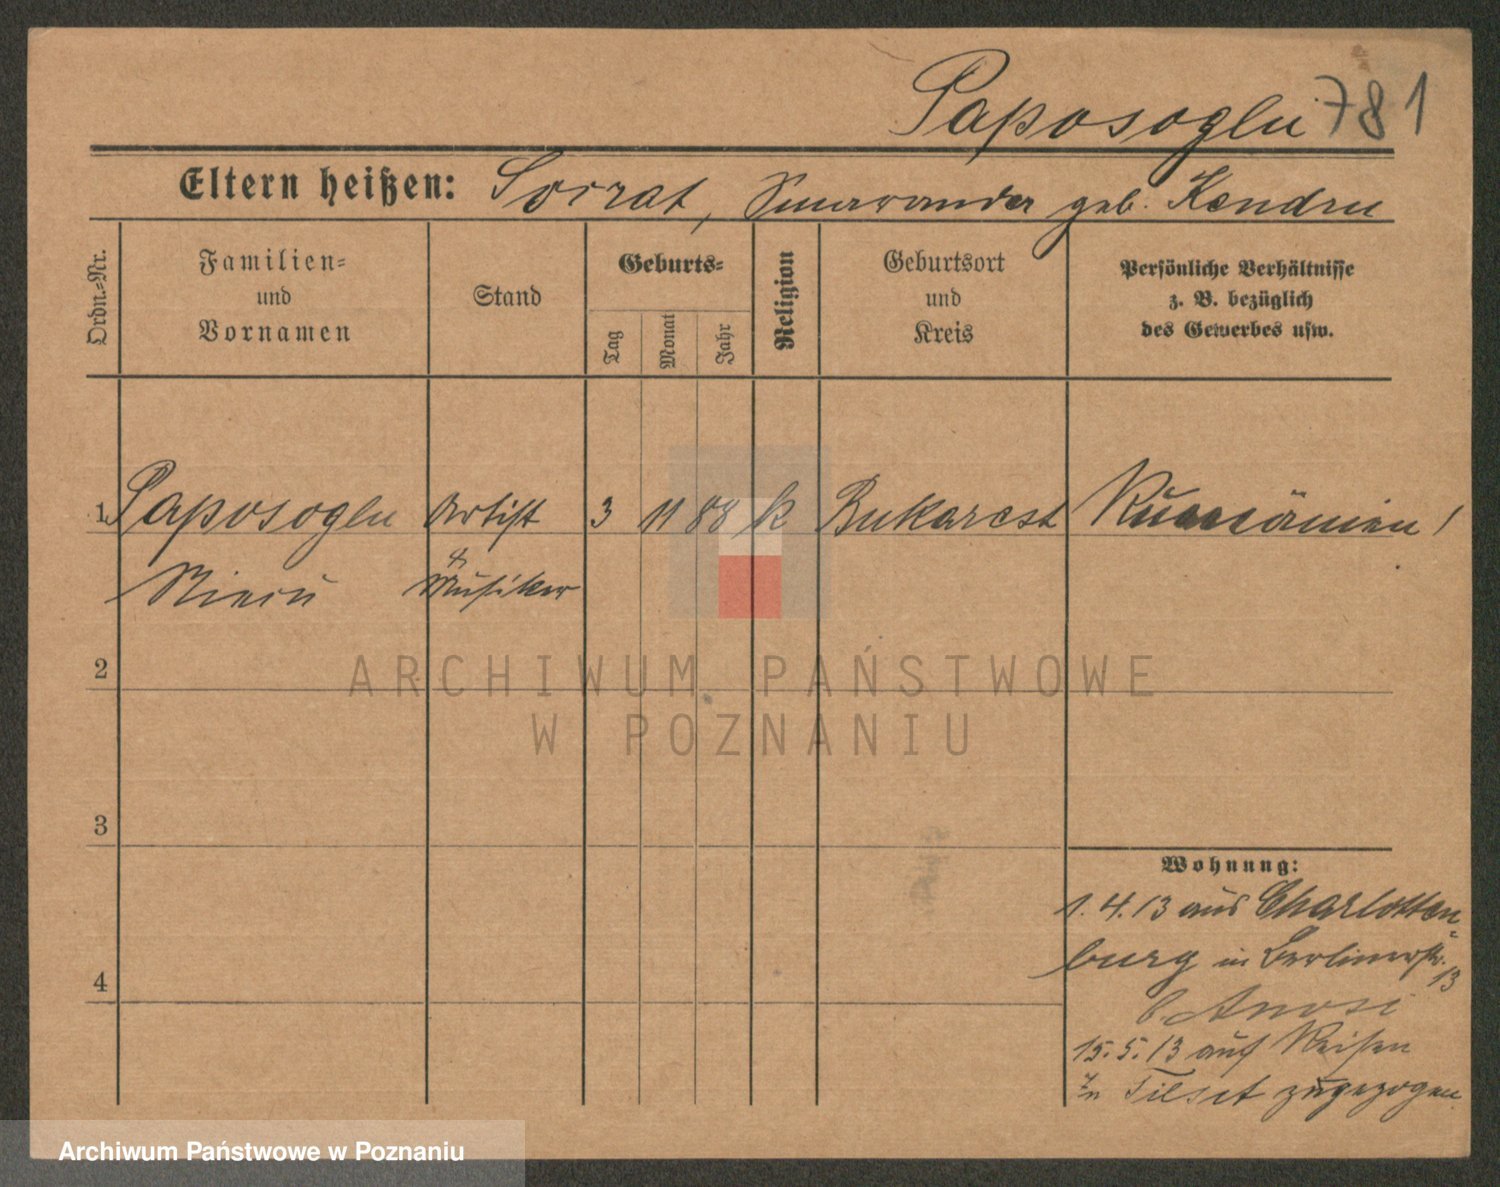 Paposoglu 781
Eltern heißen: Soirat, Smaranda geb. Kendru
Ordn.-Nr.
Familien-
und
Vornamen
Stand
Geburts-
Tag
Monat
Jahr
Religion
Geburtsort
und
Kreis
Persönliche Verhältnisse
z. B. bezüglich
des Gewerbes usw.
1 Paposoglu Artist 3 11 88 k Bukarest Rumänien!
&
Musiker
2
3
4
Wohnung:
1. 4. 13 aus Charlotten-
burg in Berlinerstr. 13
b. Anosi
15. 5. 13 auf Reisen
n Tilset zugezogen
ARCHIWUM PAŃSTWOWE
W POZNANIU
Archiwum Państwowe w Poznaniu